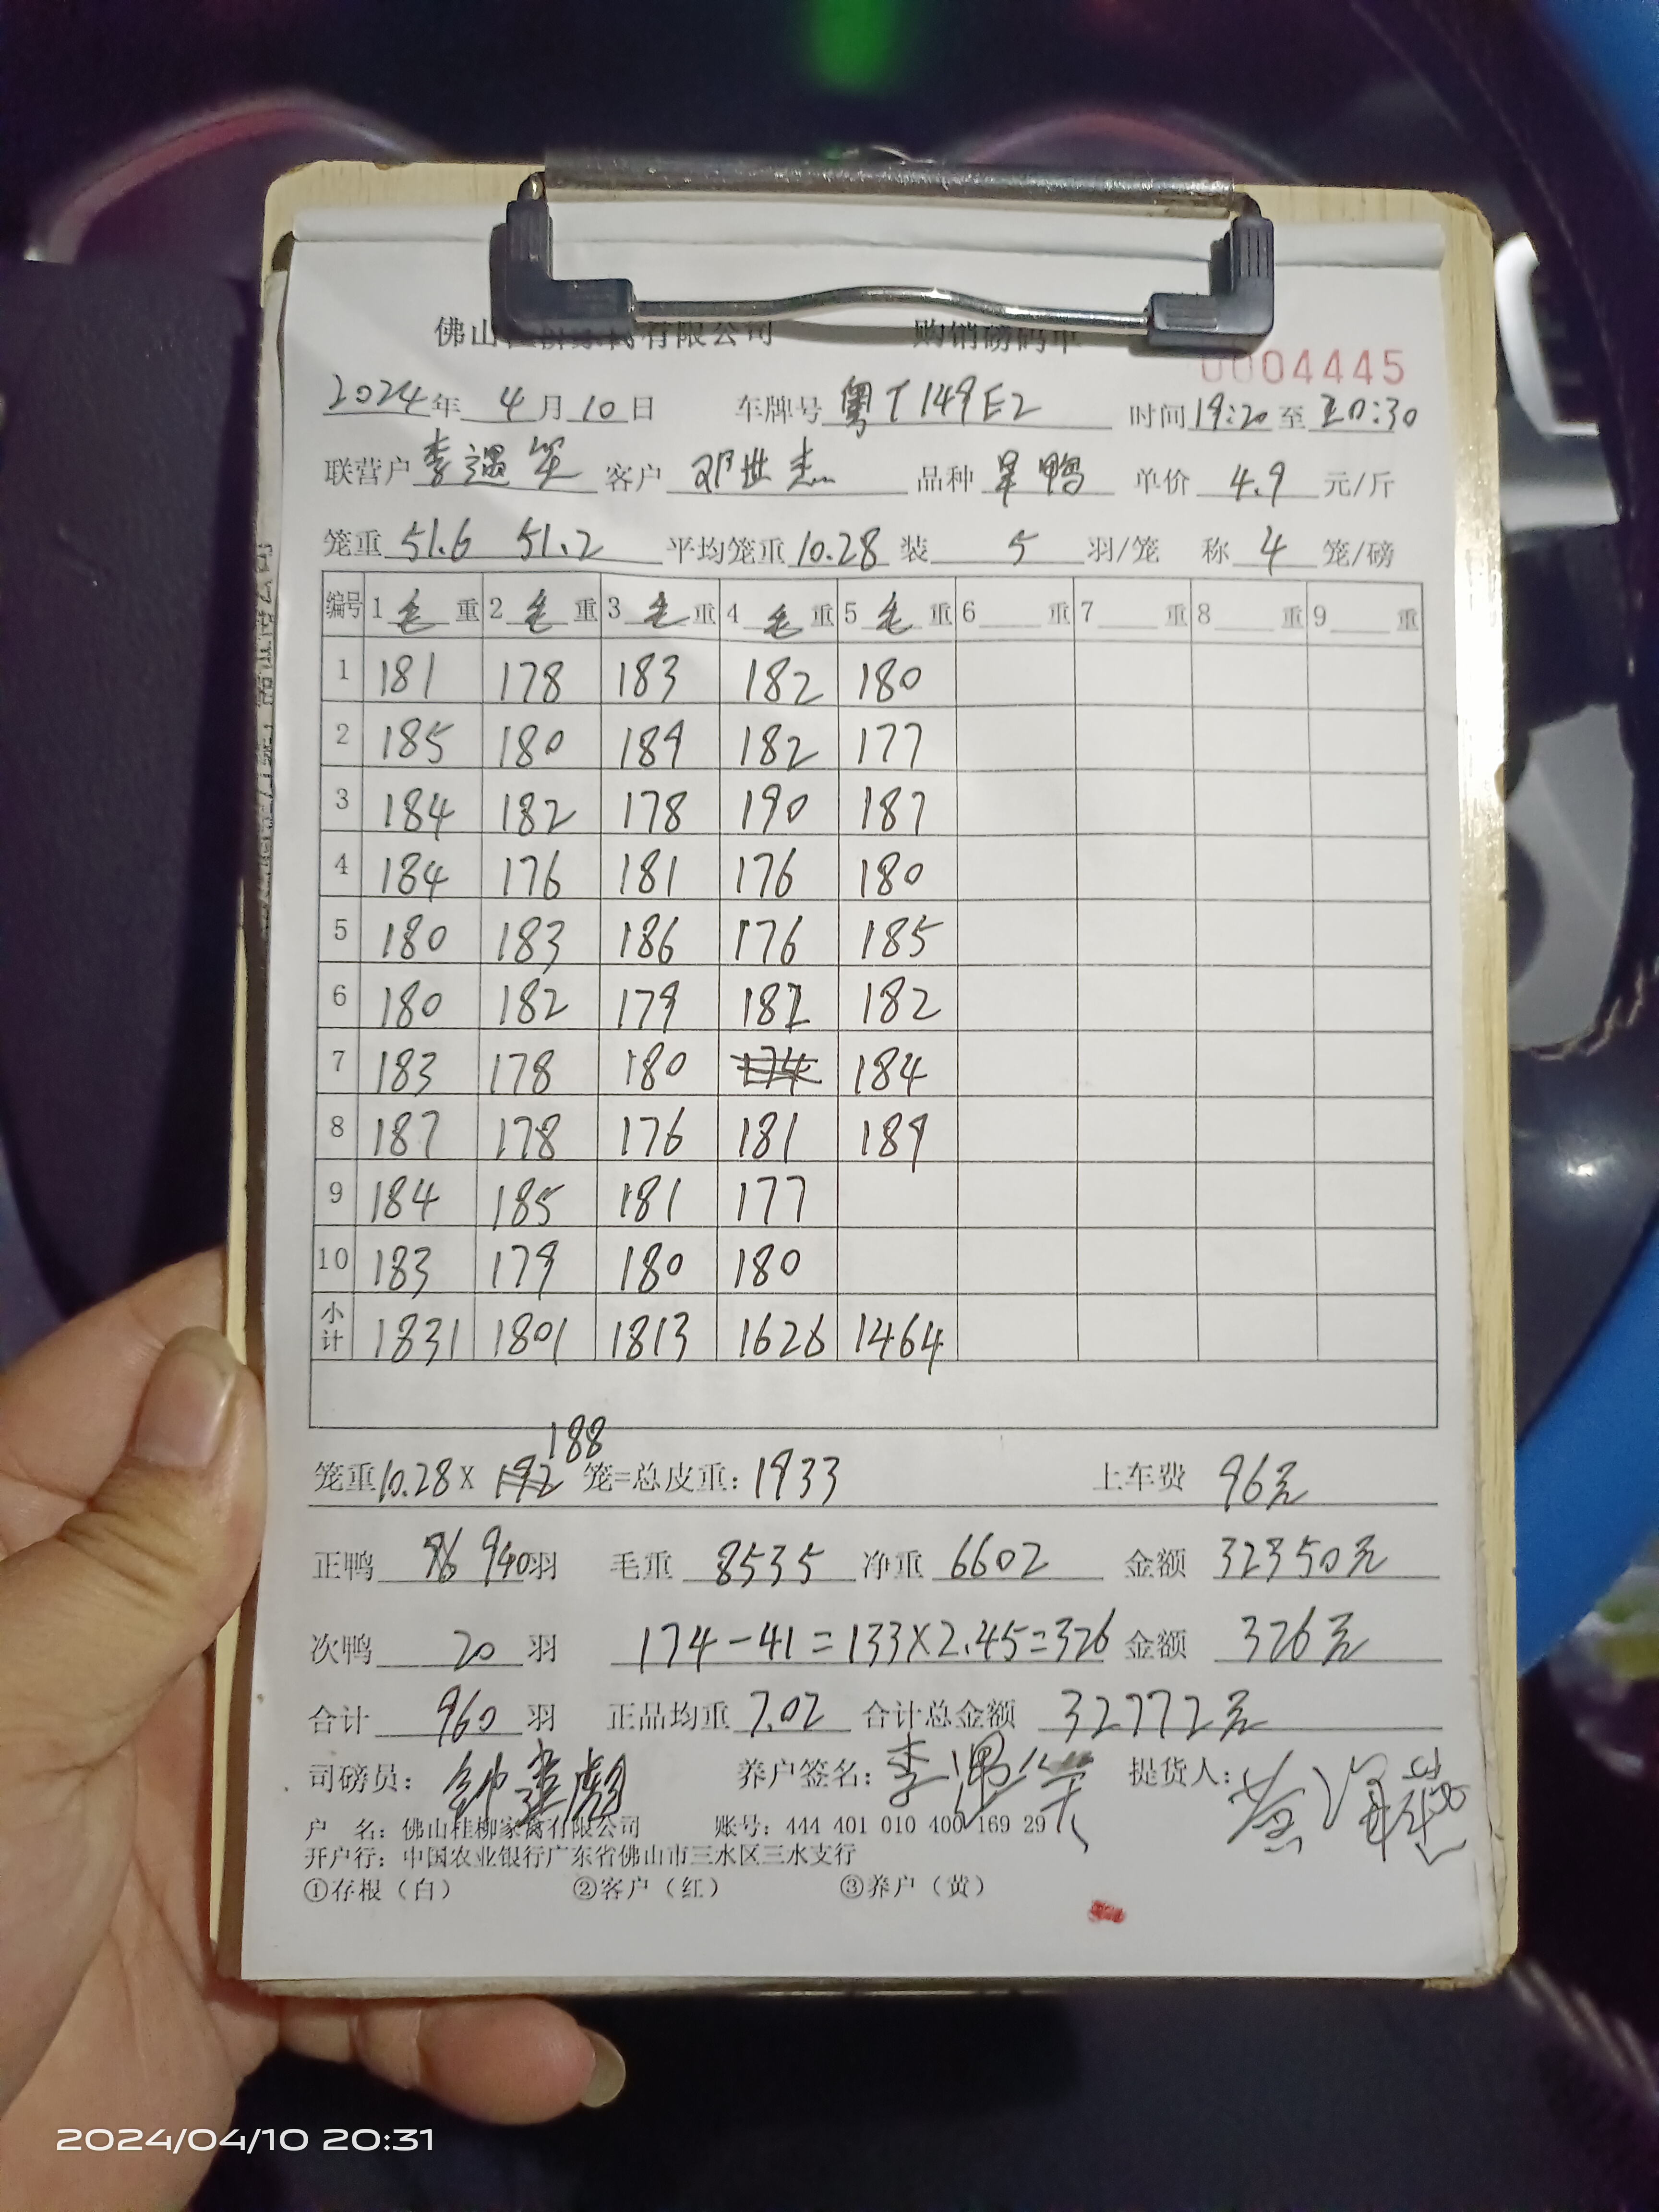 佛山桂柳家禽有限公司 购销磅码单
0004445
2024年 4月10日 车牌号 粤T149E2 时间19:20至20:30
联营户 李遇笑 客户 邓世杰 品种 旱鸭 单价 4.9 元/斤
笼重 51.6 51.2 平均笼重 10.28 装 5 羽/笼 称 4 笼/磅
编号 1毛重 2毛重 3毛重 4毛重 5毛重 6 重 7 重 8 重 9 重
1 181 178 183 182 180
2 185 180 189 182 177
3 184 182 178 190 187
4 184 176 181 176 180
5 180 183 186 176 185
6 180 182 179 182 182
7 183 178 180 174 184
8 187 178 176 181 189
9 184 185 181 177
10 183 179 180 180
小计 1831 1801 1813 1626 1464
188
笼重10.28X 192 笼=总皮重: 1933 上车费 96元
正鸭 940羽 毛重 8535 净重 6602 金额 32350元
次鸭 20 羽 174-41=133X2.45=326 金额 326元
合计 960 羽 正品均重 7.02 合计总金额 32772元
司磅员: 养户签名: 李遇笑 提货人:
户 名: 佛山桂柳家禽有限公司 账号: 444 401 010 400 169 29
开户行: 中国农业银行广东省佛山市三水区三水支行
①存根（白） ②客户（红） ③养户（黄）
2024/04/10 20:31